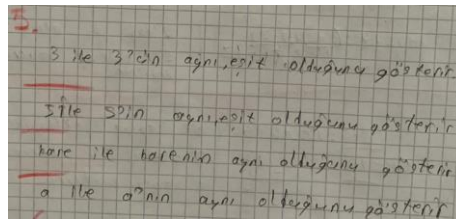 5.
3 ile 3'ün aynı, eşit olduğunu gösterir
5 ile 5'in aynı, eşit olduğunu gösterir
kare ile karenin aynı olduğunu gösterir
a ile a'nın aynı olduğunu gösterir